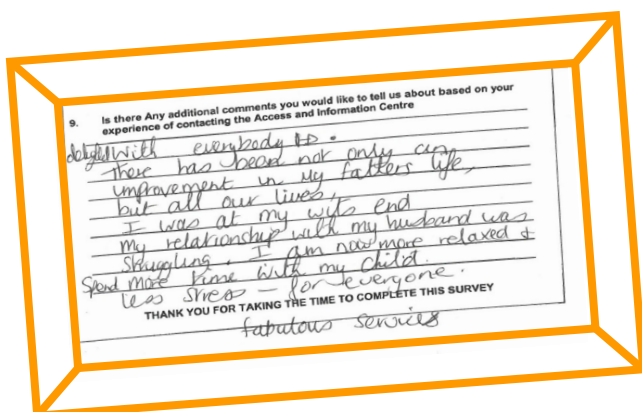 9. Is there Any additional comments you would like to tell us about based on your
experience of contacting the Access and Information Centre
delighted With everybody
There has been not only an
improvement in my fathers life,
but all our lives,
I was at my wits end
my relationship with my husband was
struggling. I am now more relaxed &
Spend more time with my child.
less stress – for everyone.
THANK YOU FOR TAKING THE TIME TO COMPLETE THIS SURVEY
fabulous services